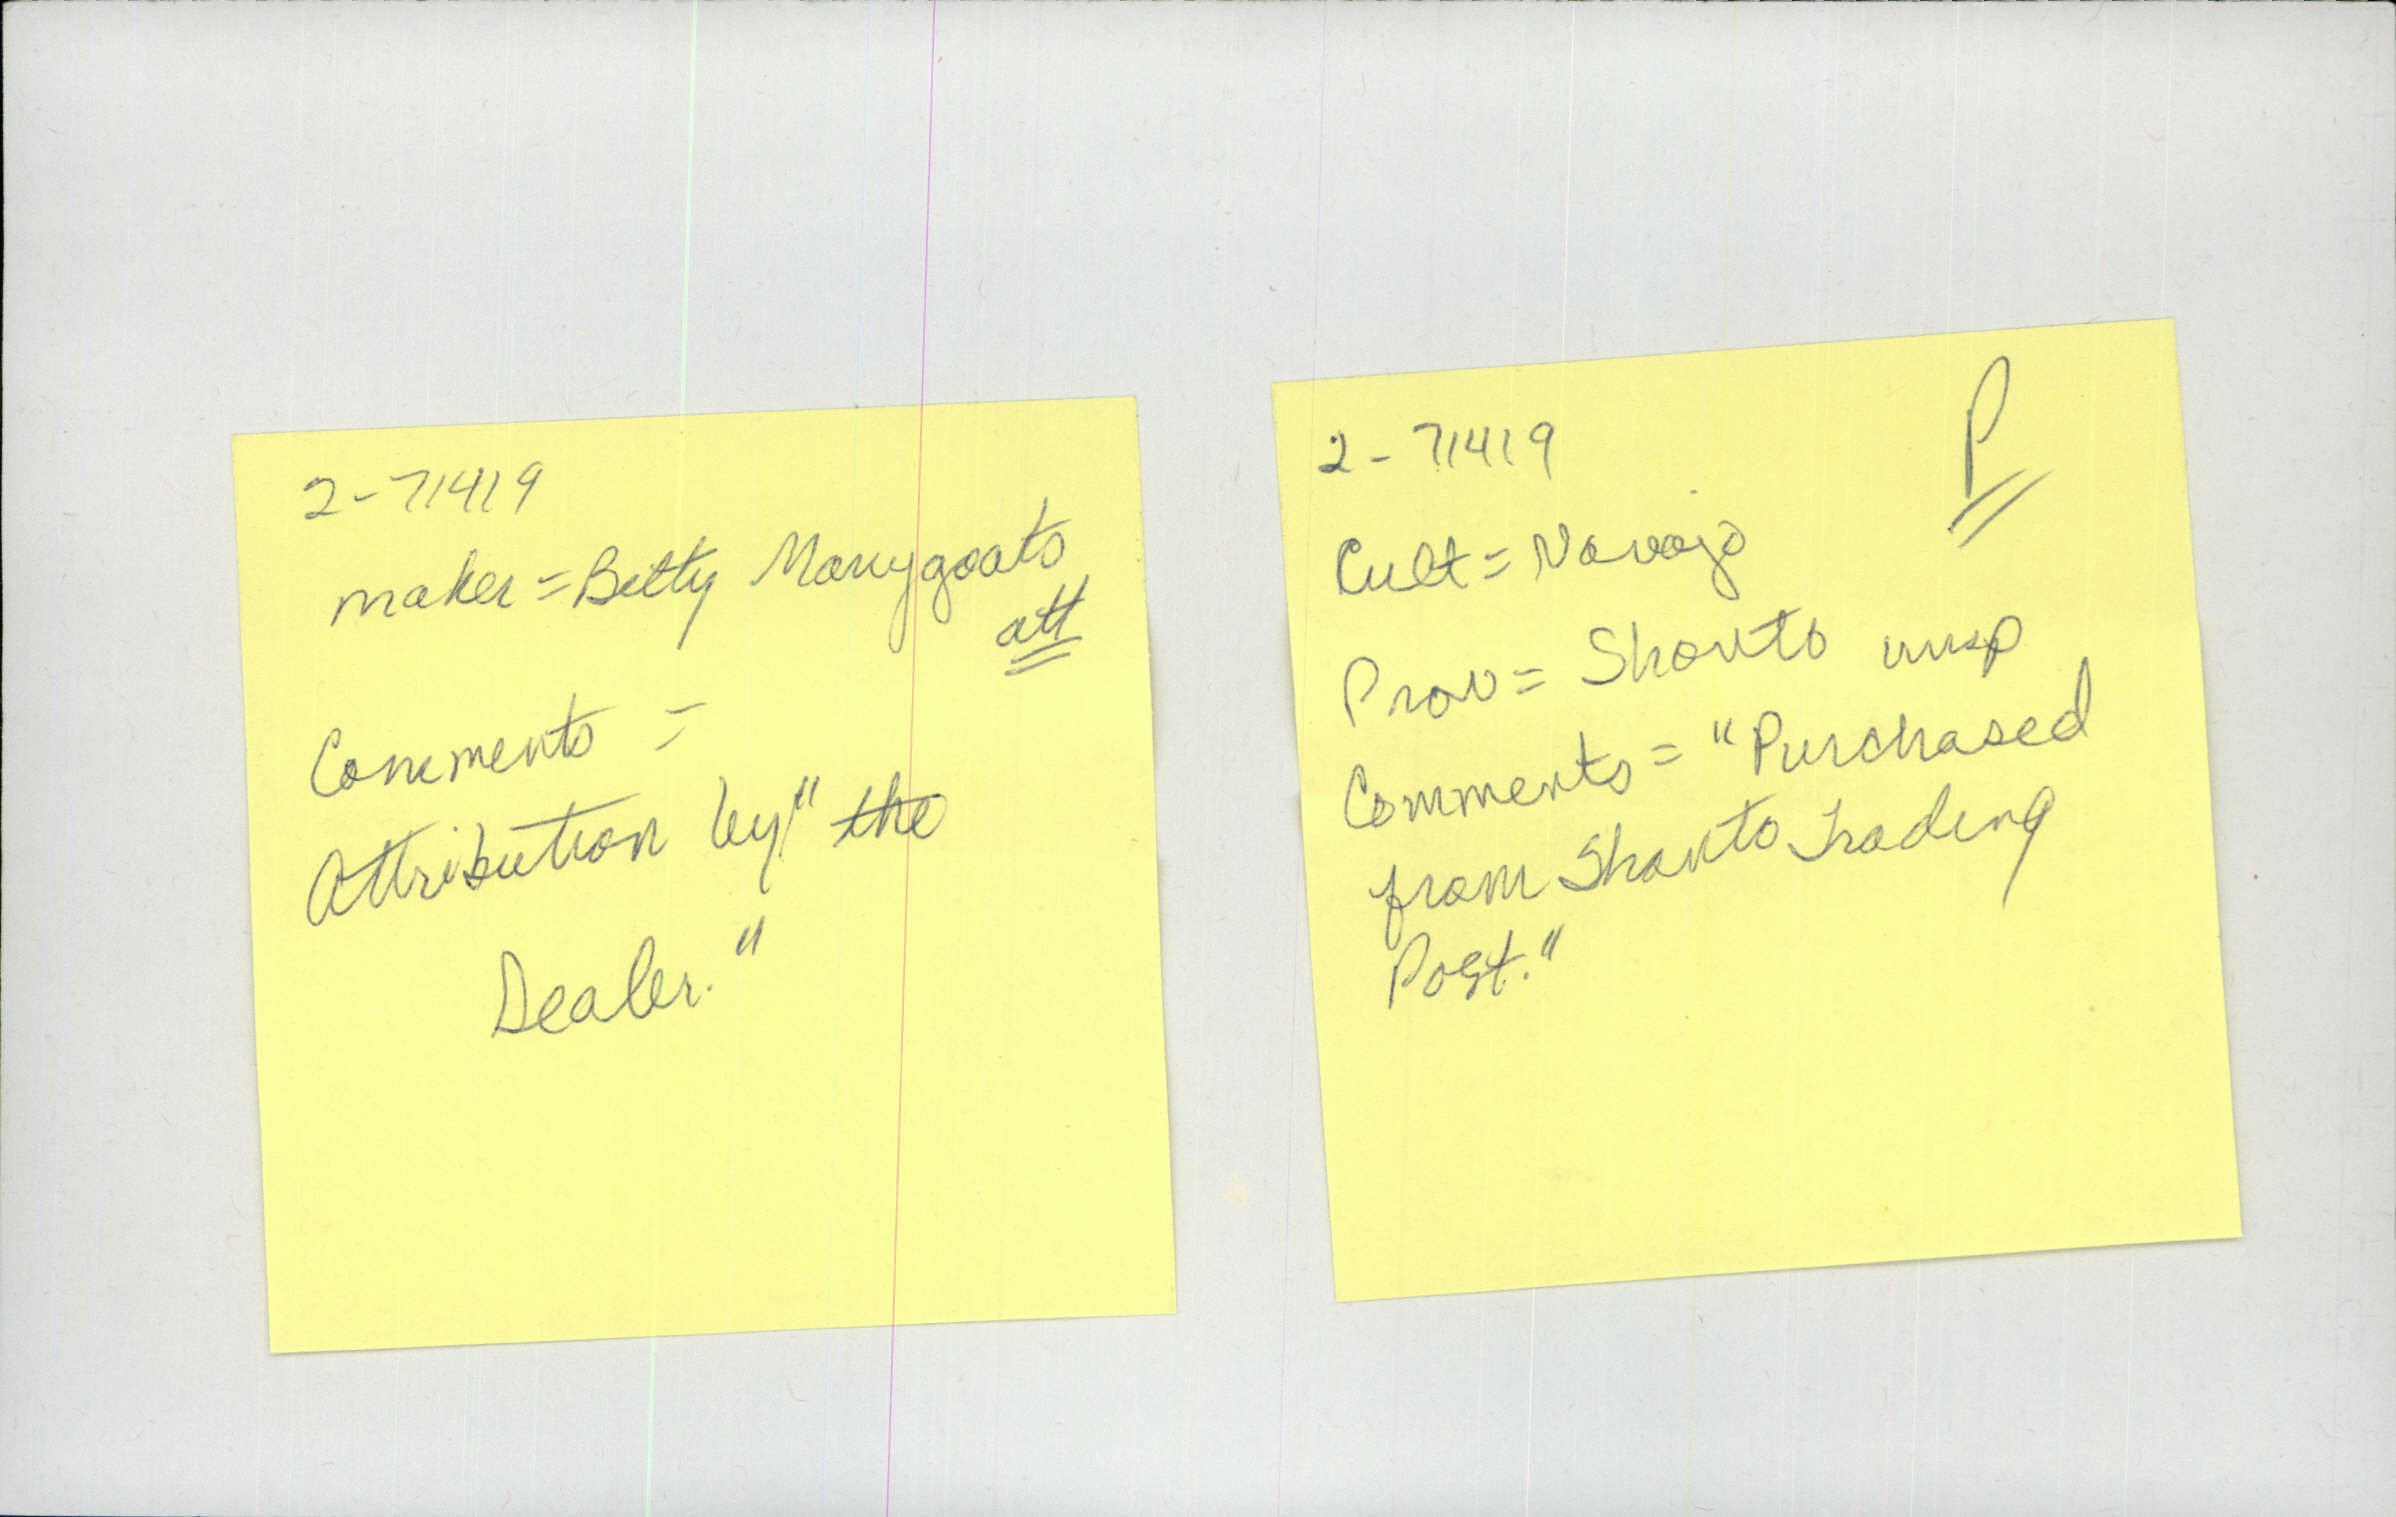 2-71419
maker = Betty Manygoats
att
Comments =
Attribution by "the
Dealer."
P
2-71419
Cult = Navajo
Prov = Shonto unsp
Comments = "Purchased
from Shonto Trading
Post."